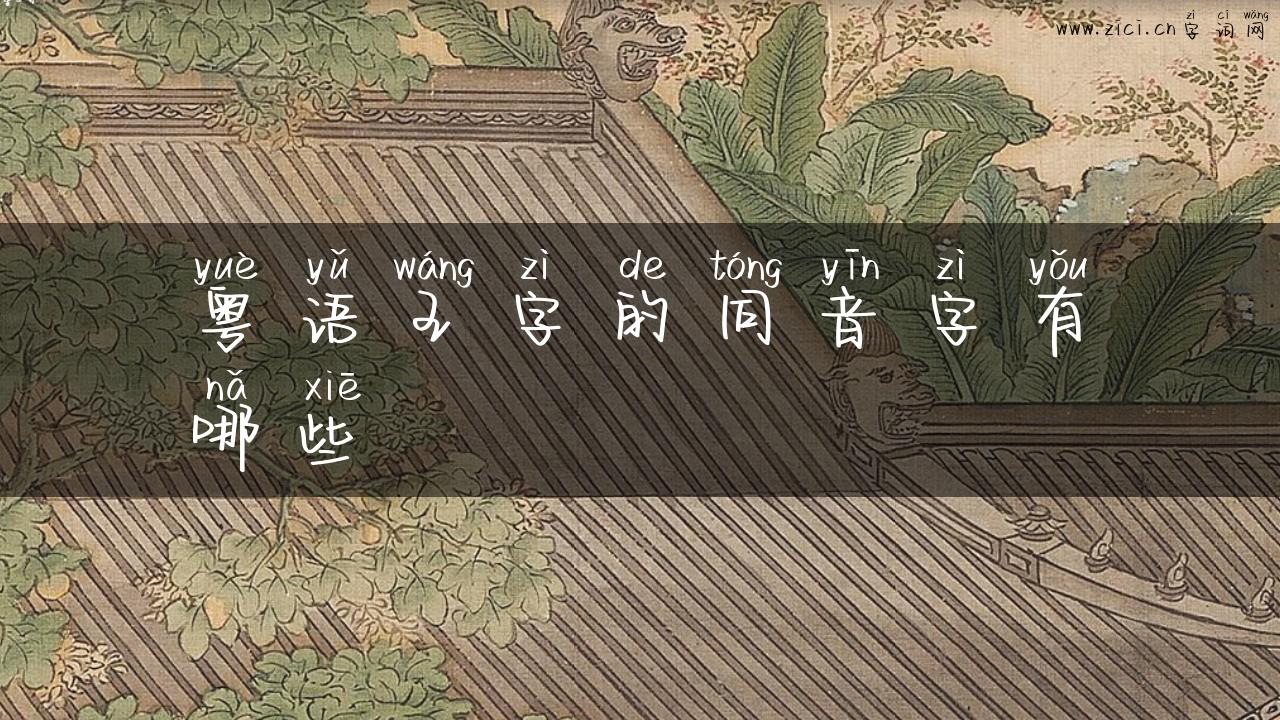 zì cí wǎng
www.zici.cn 字词网
yuè yǔ wáng zì de tóng yīn zì yǒu
粤语王字的同音字有
nǎ xiē
哪些